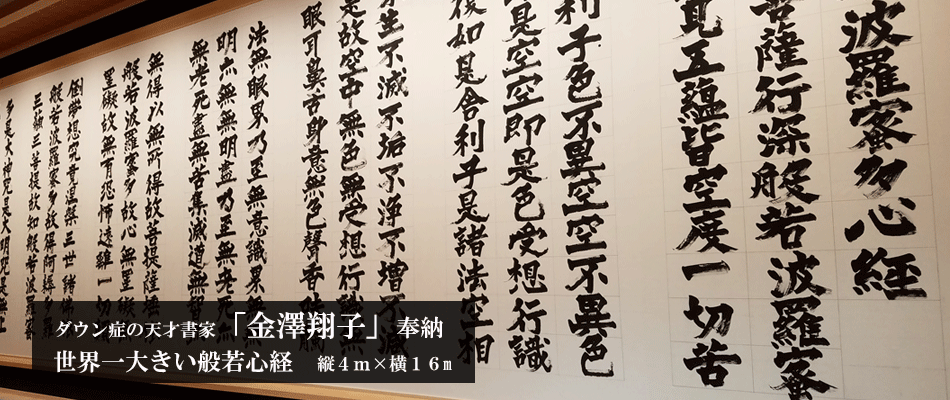 波羅蜜多心経
菩薩行深般若波羅蜜
見五蘊皆空度一切苦
利子色不異空空不異色
是空空即是色受想行識
復如是舎利子是諸法空相
生不滅不垢不浄不増不減
是故空中無色無受想行識
眼耳鼻舌身意無色聲香味
法無眼界乃至無意識界無
明亦無無明盡乃至無老死
無老死盡無苦集滅道無智
無得以無所得故菩提薩埵
般若波羅蜜多故心無罣礙
罣礙故無有恐怖遠離一切
顛倒夢想究竟涅槃三世諸佛
般若波羅蜜多故得阿耨多
三藐三菩提故知般若波羅
多是大神咒是大明咒是無上
ダウン症の天才書家「金澤翔子」奉納
世界一大きい般若心経　縦４ｍ×横１６ｍ